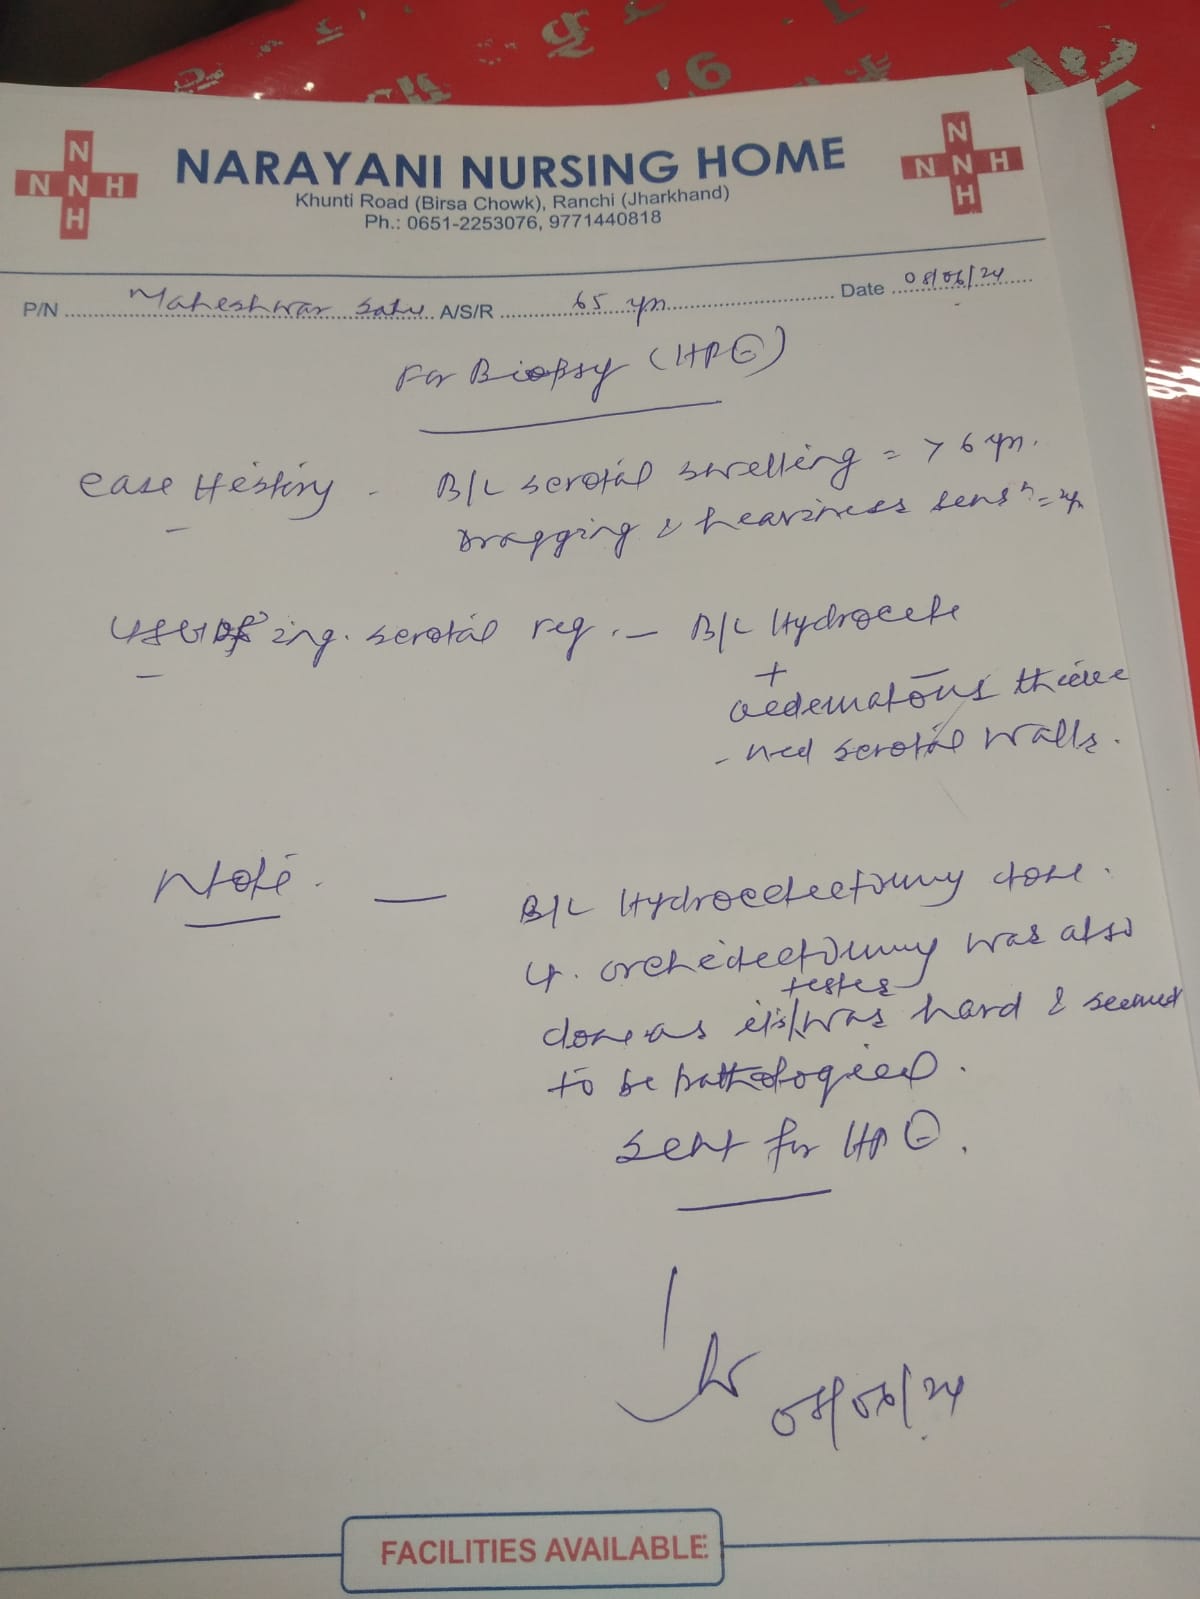 N
N N H
H
NARAYANI NURSING HOME
N
N N H
H
Khunti Road (Birsa Chowk), Ranchi (Jharkhand)
Ph.: 0651-2253076, 9771440818
P/N Maheshwar Sahu A/S/R 65 yrs Date 08/06/24
For Biopsy (HPE)
Case History - B/L scrotal swelling = > 6 yrs.
Dragging & heaviness sensn =
USG of ing. scrotal reg. - B/L Hydrocele
+
oedematous thicke
- ned scrotal walls.
Note. — B/L Hydrocelectomy done.
Lt. orchidectomy was also
testes
done as its/was hard & seemed
to be pathological.
Sent for HPE.
08/06/24
FACILITIES AVAILABLE